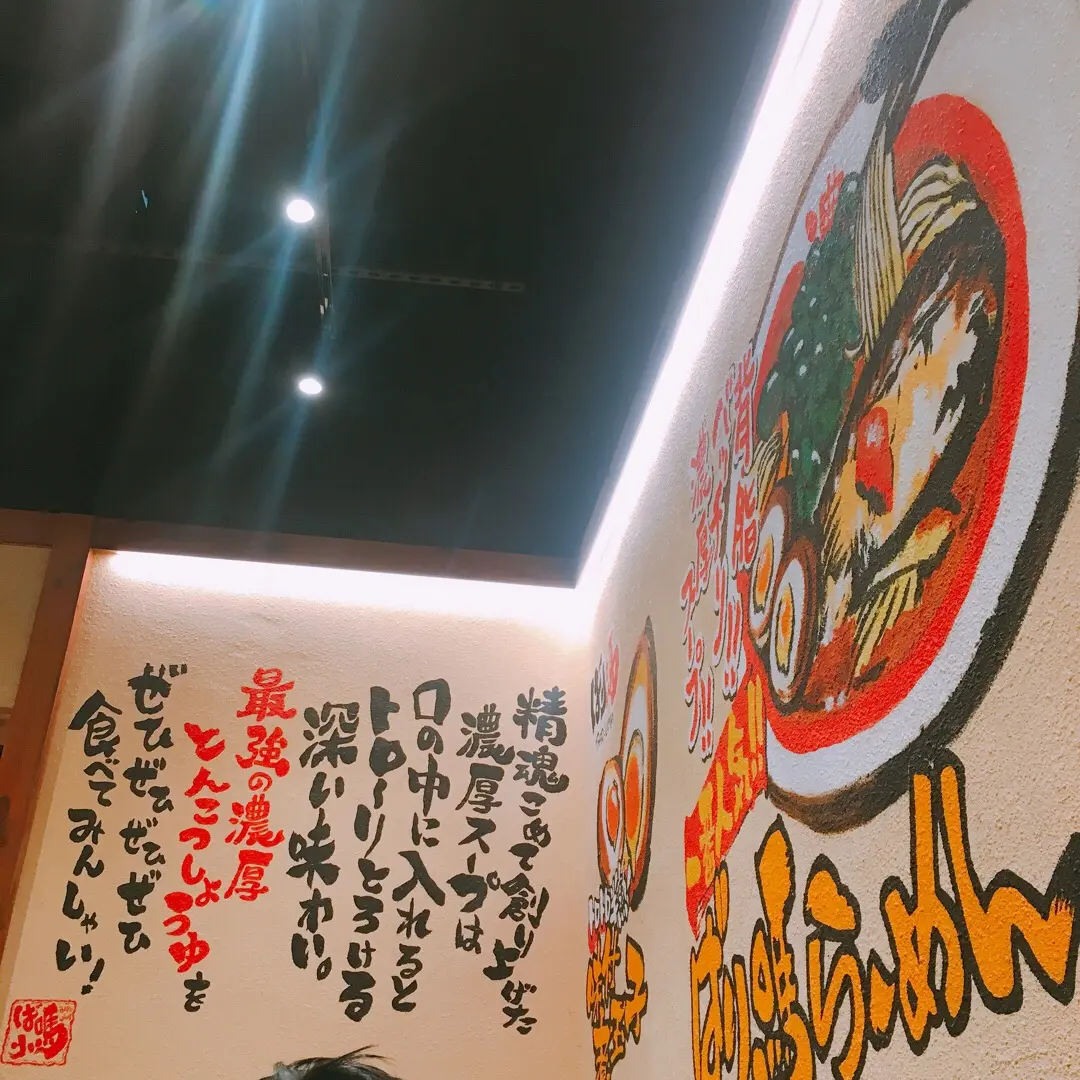 精魂こめて創り上げた
濃厚スープは
口の中に入れると
トロ〜りとろける
深い味わい。
最強の濃厚
とんこつしょうゆを
ぜひぜひぜひぜひ
食べてみんしゃい!
ばり嗚
背脂
べっチャリ!!!
濃厚スープ。!!
ばり嗚らーめん
味付
煮玉子